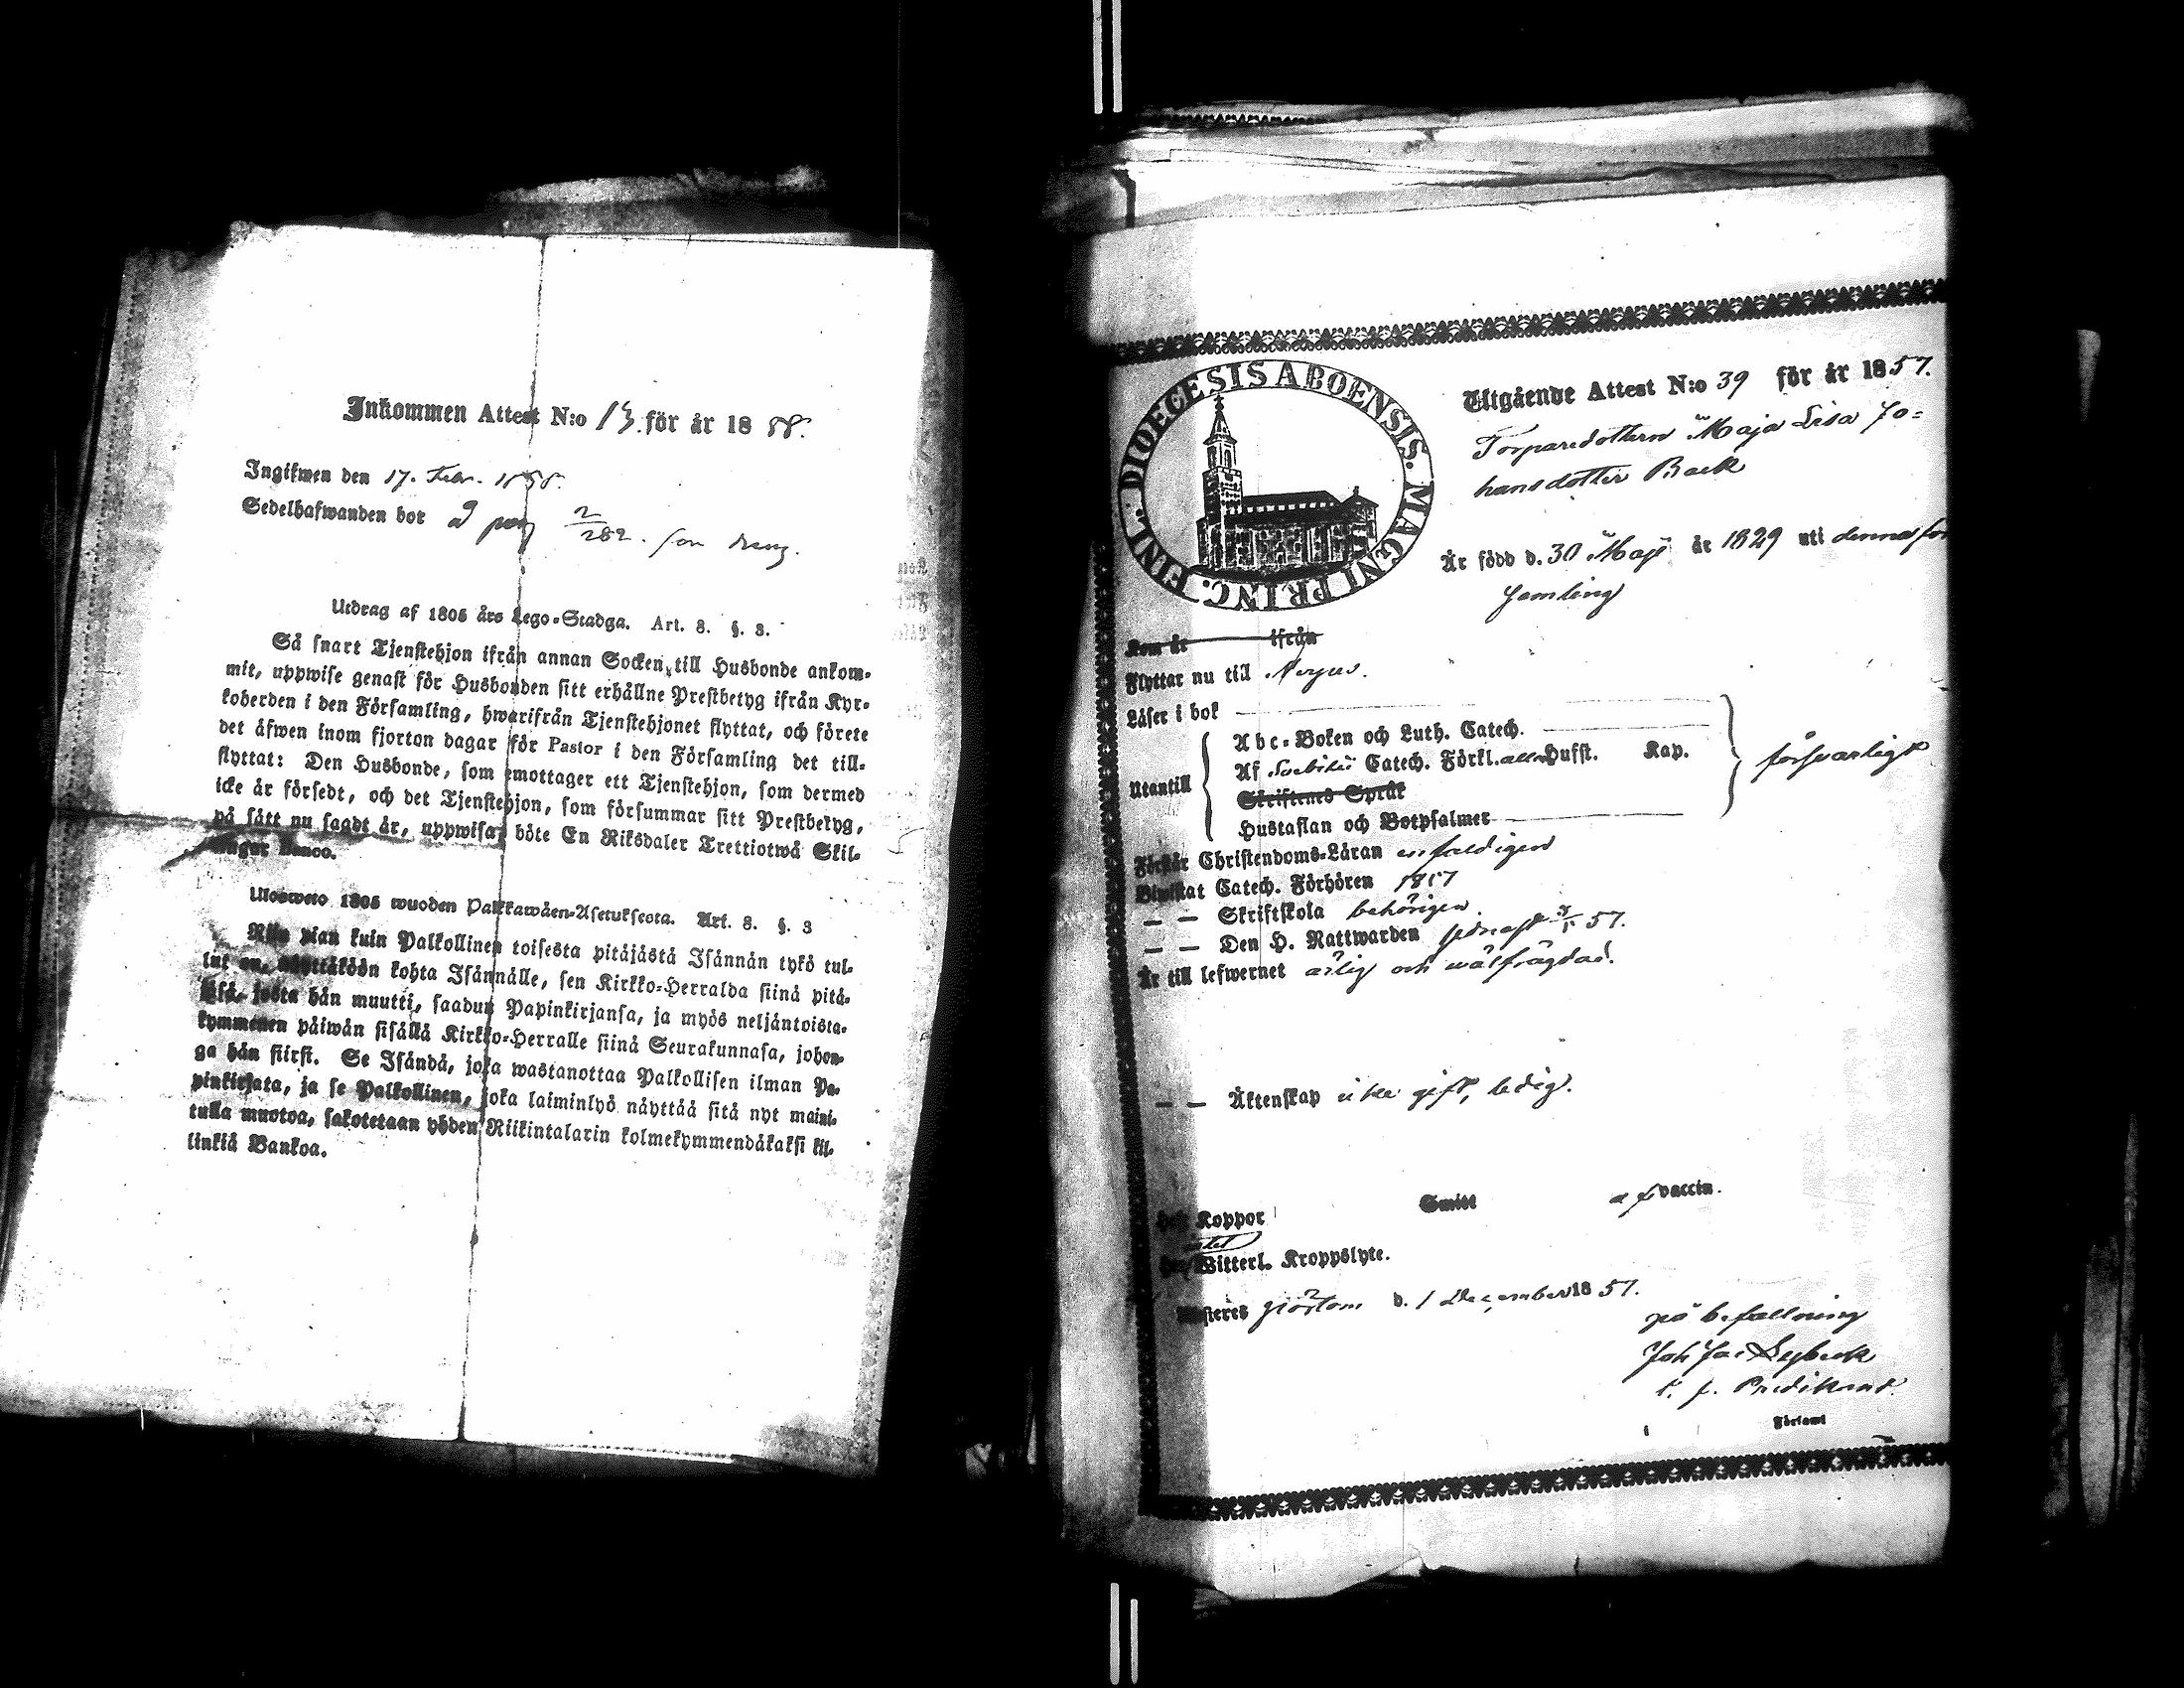 Inkommen Attest N:o 13. för år 18 58.
Ingifwen den 17. Febr. 1858.
Sedelhafwanden bor på 2/282.
Utdrag af 1805 års Lego-Stadga. Art. 8. §. 3.
Så snart Tjenstehjon ifrån annan Socken till Husbonde ankom-
mit, uppwise genast för Husbonden sitt erhållne Prestbetyg ifrån Kyr-
koherden i den Församling, hwarifrån Tjenstehjonet flyttat, och förete
det äfwen inom fjorton dagar för Pastor i den Församling det till-
flyttat: Den Husbonde, som emottager ett Tjenstehjon, som dermed
icke är försedt, och det Tjenstehjon, som försummar sitt Prestbetyg,
på sätt nu sagdt är, uppwisa, böte En Riksdaler Trettiotwå Skil-
lingar Banco.
Ulosweto 1805 wuoden Palkkawäen-Asetuksesta. Art. 8. §. 3
Niin pian kuin Palkollinen toisesta pitäjästä Isännän tykö tul-
lut on, näyttäköön kohta Isännälle, sen Kirkko-Herralda siinä pitä-
jäsä, josta hän muutti, saadun Papinkirjansa, ja myös neljäntoista-
kymmenen päiwän sisällä Kirkko-Herralle siinä Seurakunnasa, johon-
ga hän siirsi. Se Isändä, joka wastanottaa Palkollisen ilman Pa-
pinkirjata, ja se Palkollinen, joka laiminlyö näyttää sitä nyt maini-
tulla muotoa, sakotetaan yhden Riikintalarin kolmekymmendäkaksi kil-
linkiä Bankoa.
DIOECESIS ABOENSIS. MAGNI PRINC. FINL.
Utgående Attest N:o 39 för år 1857.
Torparedottern Maja Lisa Jo=
hansdotter Back
Är född d. 30 Maji år 1829 uti denna för
samling
Kom år ifrån
Flyttar nu till Nagu.
Läser i bok
Utantill
Abc-Boken och Luth. Catech.
Af Svebilii Catech. Förkl. alla Hufst. Kap.
Skriftenes Språk
Hustaflan och Botpsalmer
försvarligt
Förstår Christendoms-Läran enfaldigen
Biwistat Catech. Förhören 1857
— — Skriftskola behörigen
— — Den H. Nattwarden senast 57.
Är till lefwernet ärlig och wälfrägdad.
— — Äktenskap icke gift, ledig.
Haft Koppor Smitt af vaccin.
intet
Har Witterl. Kroppslyte.
Attesteras Hörtom d. 1 December 1857.
på befallning
Joh Jac Lybeck
t. f. Predikant.
i Församl